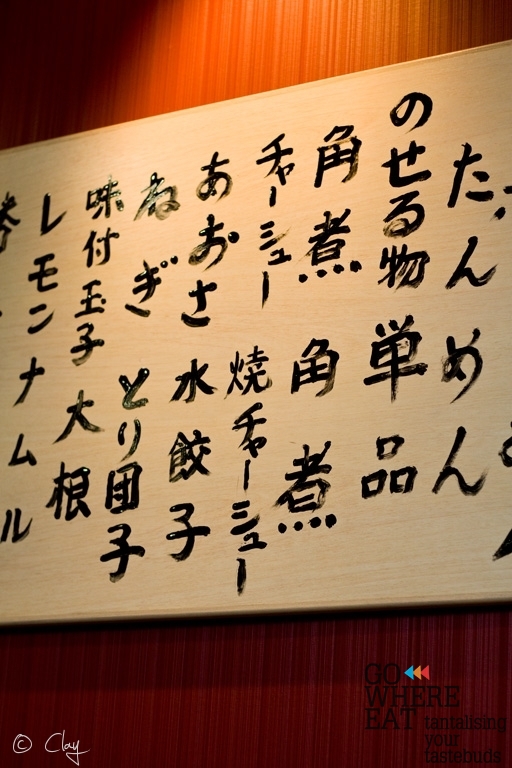 たんめん
のせる物 単品
角煮 角煮
チャーシュー 焼チャーシュー
あおさ 水餃子
ねぎ とり団子
味付玉子 大根
レモンナムル
GO
WHERE
EAT tantalising
your
tastebuds
© Clay